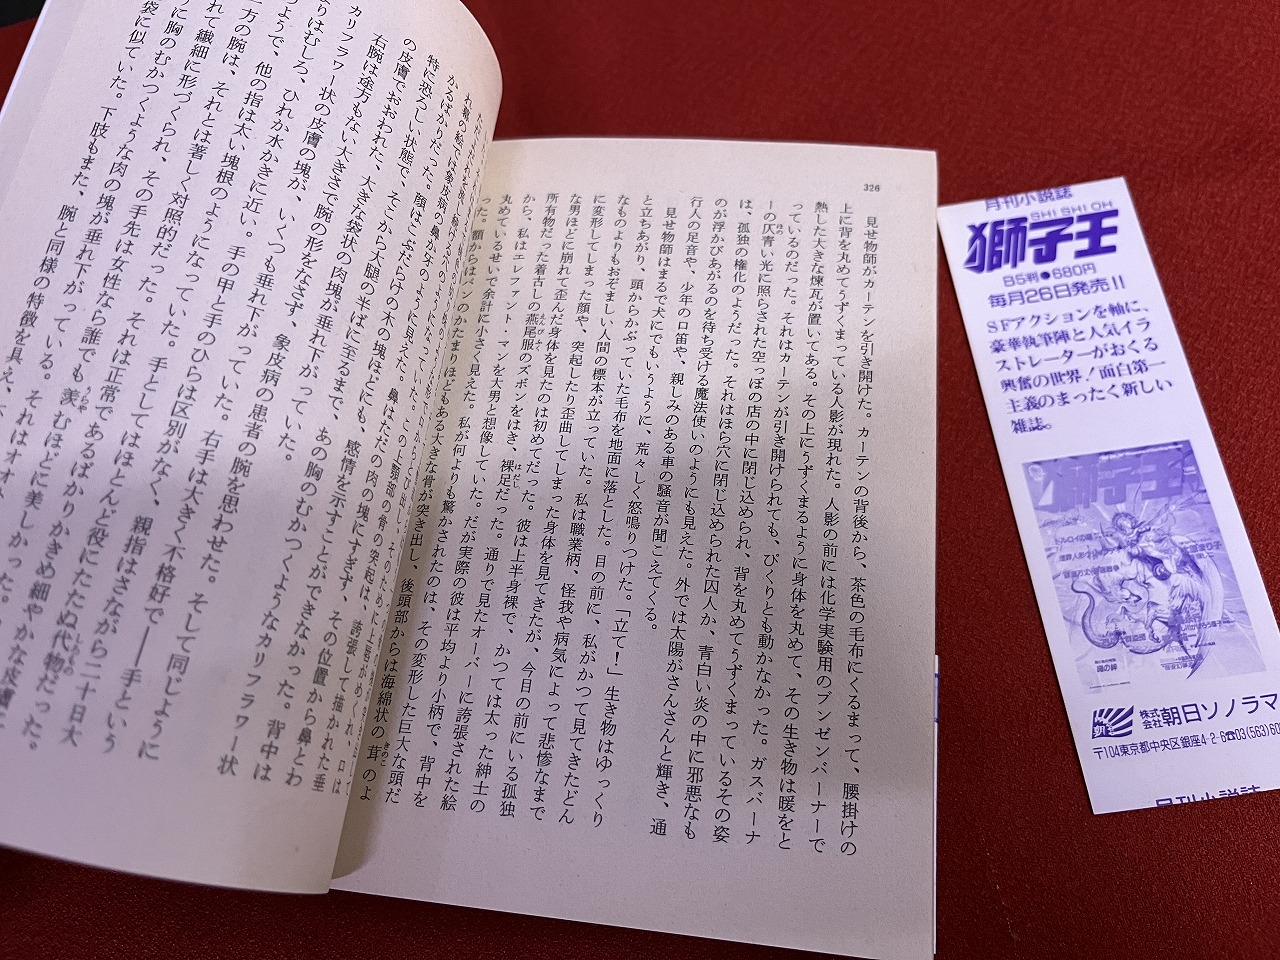 326
見せ物師がカーテンを引き開けた。カーテンの背後から、茶色の毛布にくるまって、腰掛けの
上に背を丸めてうずくまっている人影が現れた。人影の前には化学実験用のブンゼンバーナーで
熱した大きな煉瓦が置いてある。その上にうずくまるように身体を丸めて、その生き物は暖をと
っているのだった。それはカーテンが引き開けられても、ぴくりとも動かなかった。ガスバーナ
ーの仄青い光に照らされた空っぽの店の中に閉じ込められ、背を丸めてうずくまっているその姿
は、孤独の権化のようだった。それはほら穴に閉じ込められた囚人か、青白い炎の中に邪悪なも
のが浮かびあがるのを待ち受ける魔法使いのようにも見えた。外では太陽がさんさんと輝き、通
行人の足音や、少年の口笛や、親しみのある車の騒音が聞こえてくる。
見せ物師はまるで犬にでもいうように、荒々しく怒鳴りつけた。「立て！」生き物はゆっくり
と立ちあがり、頭からかぶっていた毛布を地面に落とした。目の前に、私がかつて見てきたどん
なものよりもおぞましい人間の標本が立っていた。私は職業柄、怪我や病気によって悲惨なまで
に変形してしまった顔や、突起したり歪曲してしまった身体を見てきたが、今目の前にいる孤独
な男ほどに崩れて歪んだ身体を見たのは初めてだった。彼は上半身裸で、かつては太った紳士の
所有物だった着古しの燕尾服のズボンをはき、裸足だった。通りで見たオーバーに誇張された絵
から、私はエレファント・マンを大男と想像していた。だが実際の彼は平均より小柄で、背中を
丸めているせいで余計に小さく見えた。私が何よりも驚かされたのは、その変形した巨大な頭だ
った。額からはパンのかたまりほどもある大きな骨が突き出し、後頭部からは海綿状の茸のよ
かるばかりだった。顔はこぶだらけの木の塊ほどにも、感情を示すことができなかった。背中は
特に恐ろしい状態で、そこから大腿の半ばに至るまで、あの胸のむかつくようなカリフラワー状
の皮膚でおおわれた、大きな袋状の肉塊が垂れ下がっていた。
右腕は途方もない大きさで腕の形をなさず、象皮病の患者の腕を思わせた。そして同じように
カリフラワー状の皮膚の塊が、いくつも垂れ下がっていた。右手は大きく不格好で――手という
よりはむしろ、ひれか水かきに近い。手の甲と手のひらは区別がなく、親指はさながら二十日大
ようで、他の指は太い塊根のようになっていた。手としてはほとんど役にたたぬ代物だった。
方の腕は、それとは著しく対照的だった。それは正常であるばかりかきめ細やかな皮膚に
れて繊細に形づくられ、その手先は女性なら誰でも羨むほどに美しかった。
に胸のむかつくような肉の塊が垂れ下がっている。それはオオ
袋に似ていた。下肢もまた、腕と同様の特徴を具え
月刊小説誌
SHI SHI OH
獅子王
B5判●680円
毎月26日発売!!
SFアクションを軸に、
豪華執筆陣と人気イラ
ストレーターがおくる
興奮の世界！面白第一
主義のまったく新しい
雑誌。
獅子王
株式会社朝日ソノラマ
〒104東京都中央区銀座4-2-6☎03(563)60
月刊小説誌